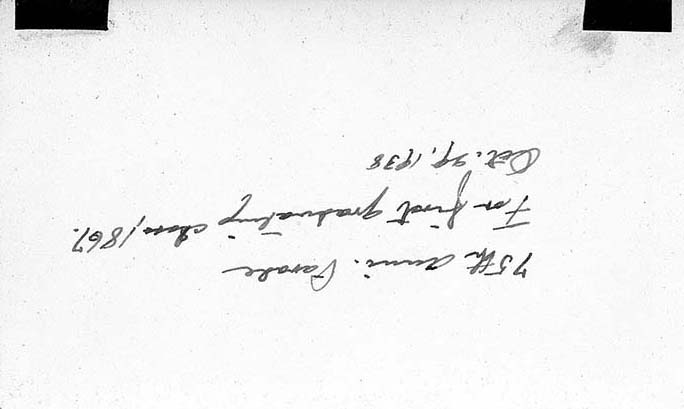 75th anni. Parade
For first graduating class, 1867.
Oct. 29, 1938